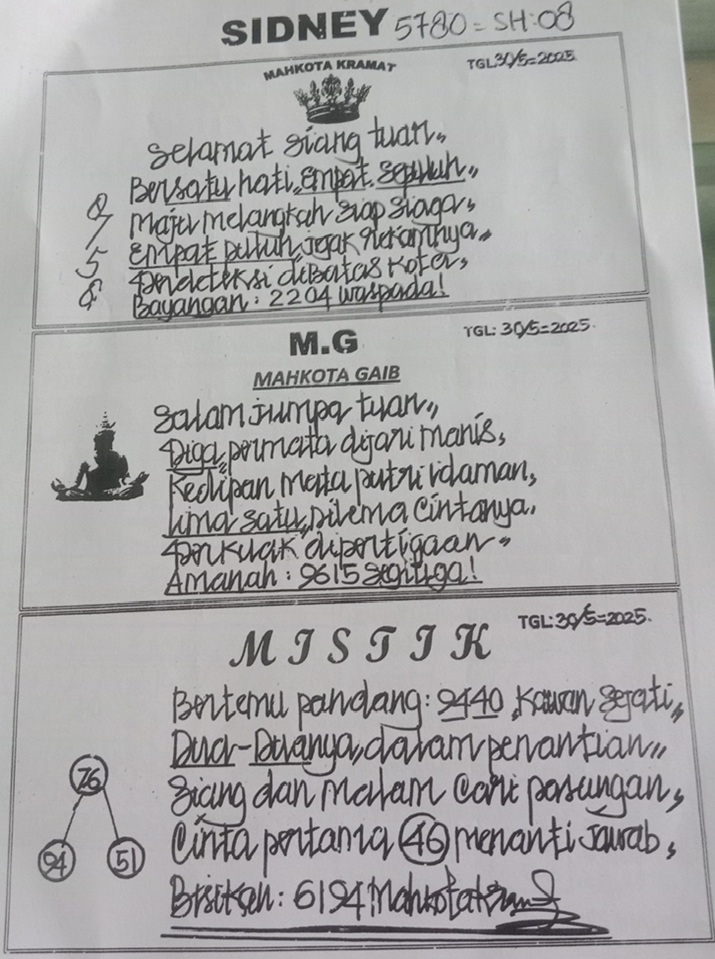 SIDNEY 5780 = SH: 08
MAHKOTA KRAMAT
TGL 30/5=2025
Selamat siang tuan,,
Bersatu hati, Empat Sepuluh,,
Maju melangkah siap siaga,
Empat puluh, jejak rekamnya,,
Terdeteksi dibatas Kota,
Bayangan: 2204 waspada!
8
7
5
M.G
TGL: 30/5=2025
MAHKOTA GAIB
Salam jumpa tuan,,
Tiga, permata dijari manis,
Kedipan mata putri idaman,
Lima satu, Dilema Cintanya,
Terkuak dipertigaan,,
Amanah: 9615 segitiga!
MISTIK
TGL: 30/5=2025
Bertemu pandang: 9440, Kawan Sejati,,
Dua-Duanya, dalam penantian,,
Siang dan malam Cari pasungan,
Cinta pertama 46 menanti jawab,
Bisikan: 6194 Mahkota
76
94
51